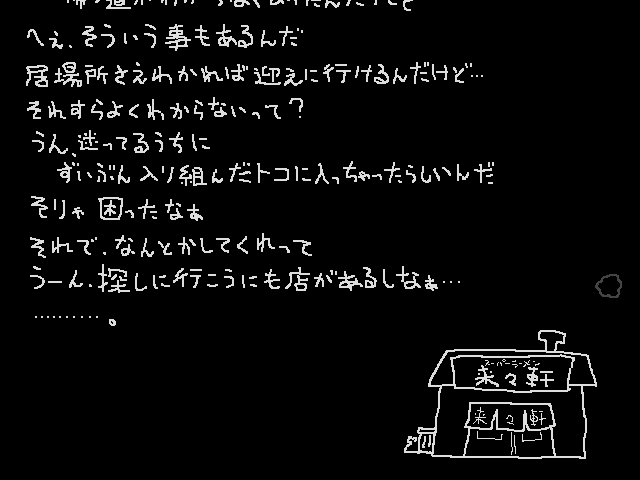 へぇ、そういう事もあるんだ
居場所さえわかれば迎えに行けるんだけど…
それすらよくわからないって？
うん、迷ってるうちに
ずいぶん入り組んだトコに入っちゃったらしいんだ
そりゃ困ったなぁ
それで、なんとかしてくれって
うーん、探しに行こうにも店があるしなぁ…
………。
スーパーラーメン
来々軒
来々軒